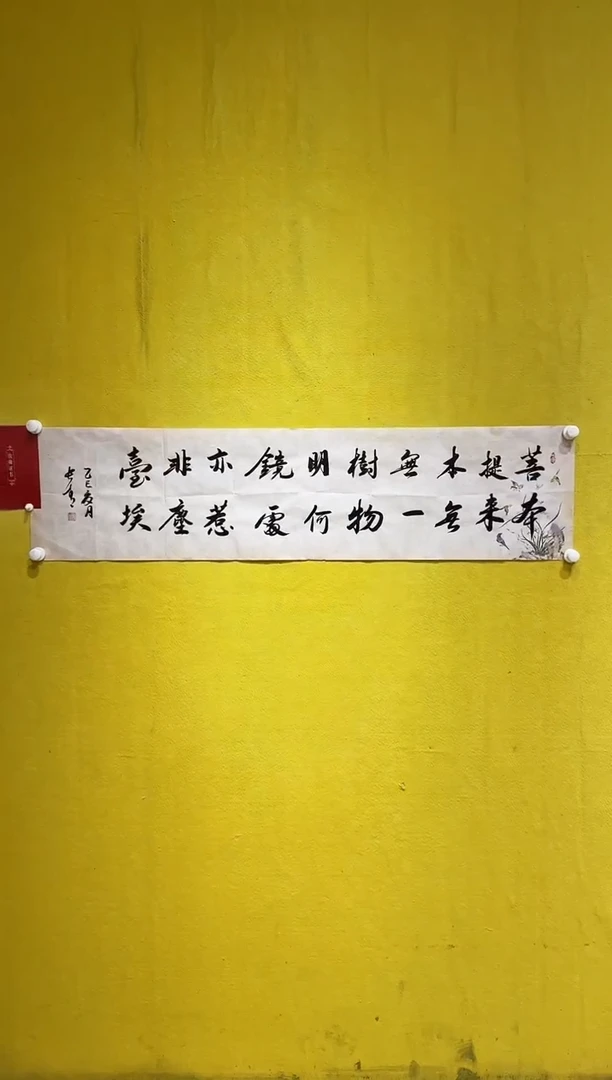 菩提本無樹明鏡亦非臺
本来无一物何處惹塵埃
乙巳月